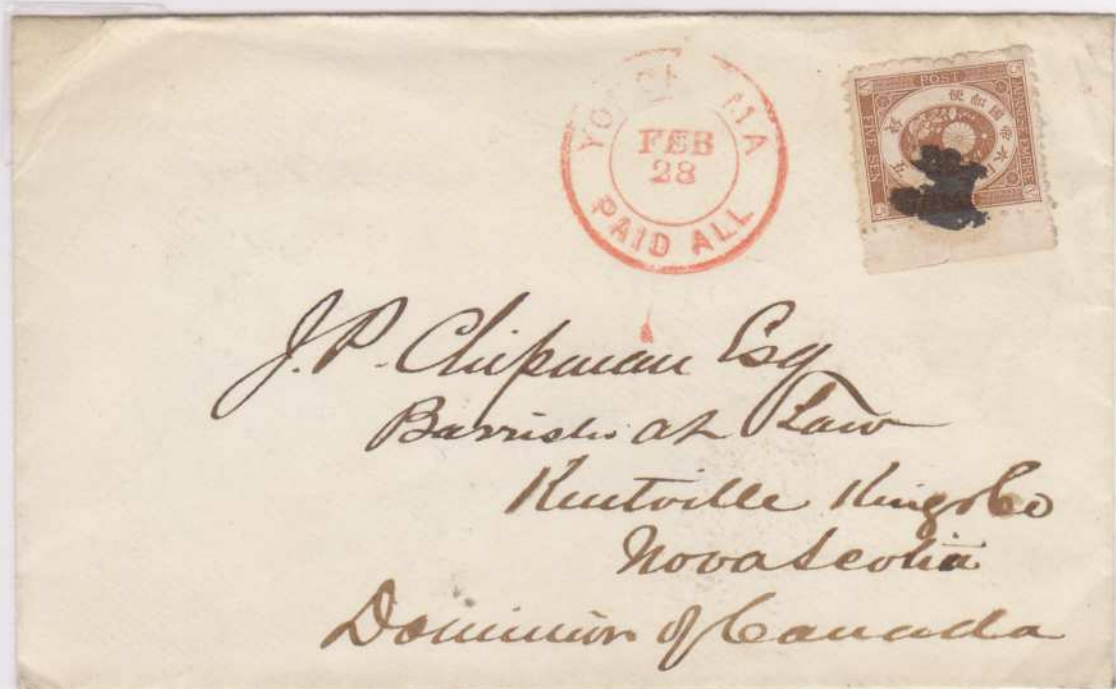 YO MA
FEB
28
PAID ALL
POST
JAPANESE EMPIRE
FIVE SEN
大帝國郵便
五
J. P. Chipman Esq
Barrister at Law
Kentville Kings Co
Nova Scotia
Dominion of Canada